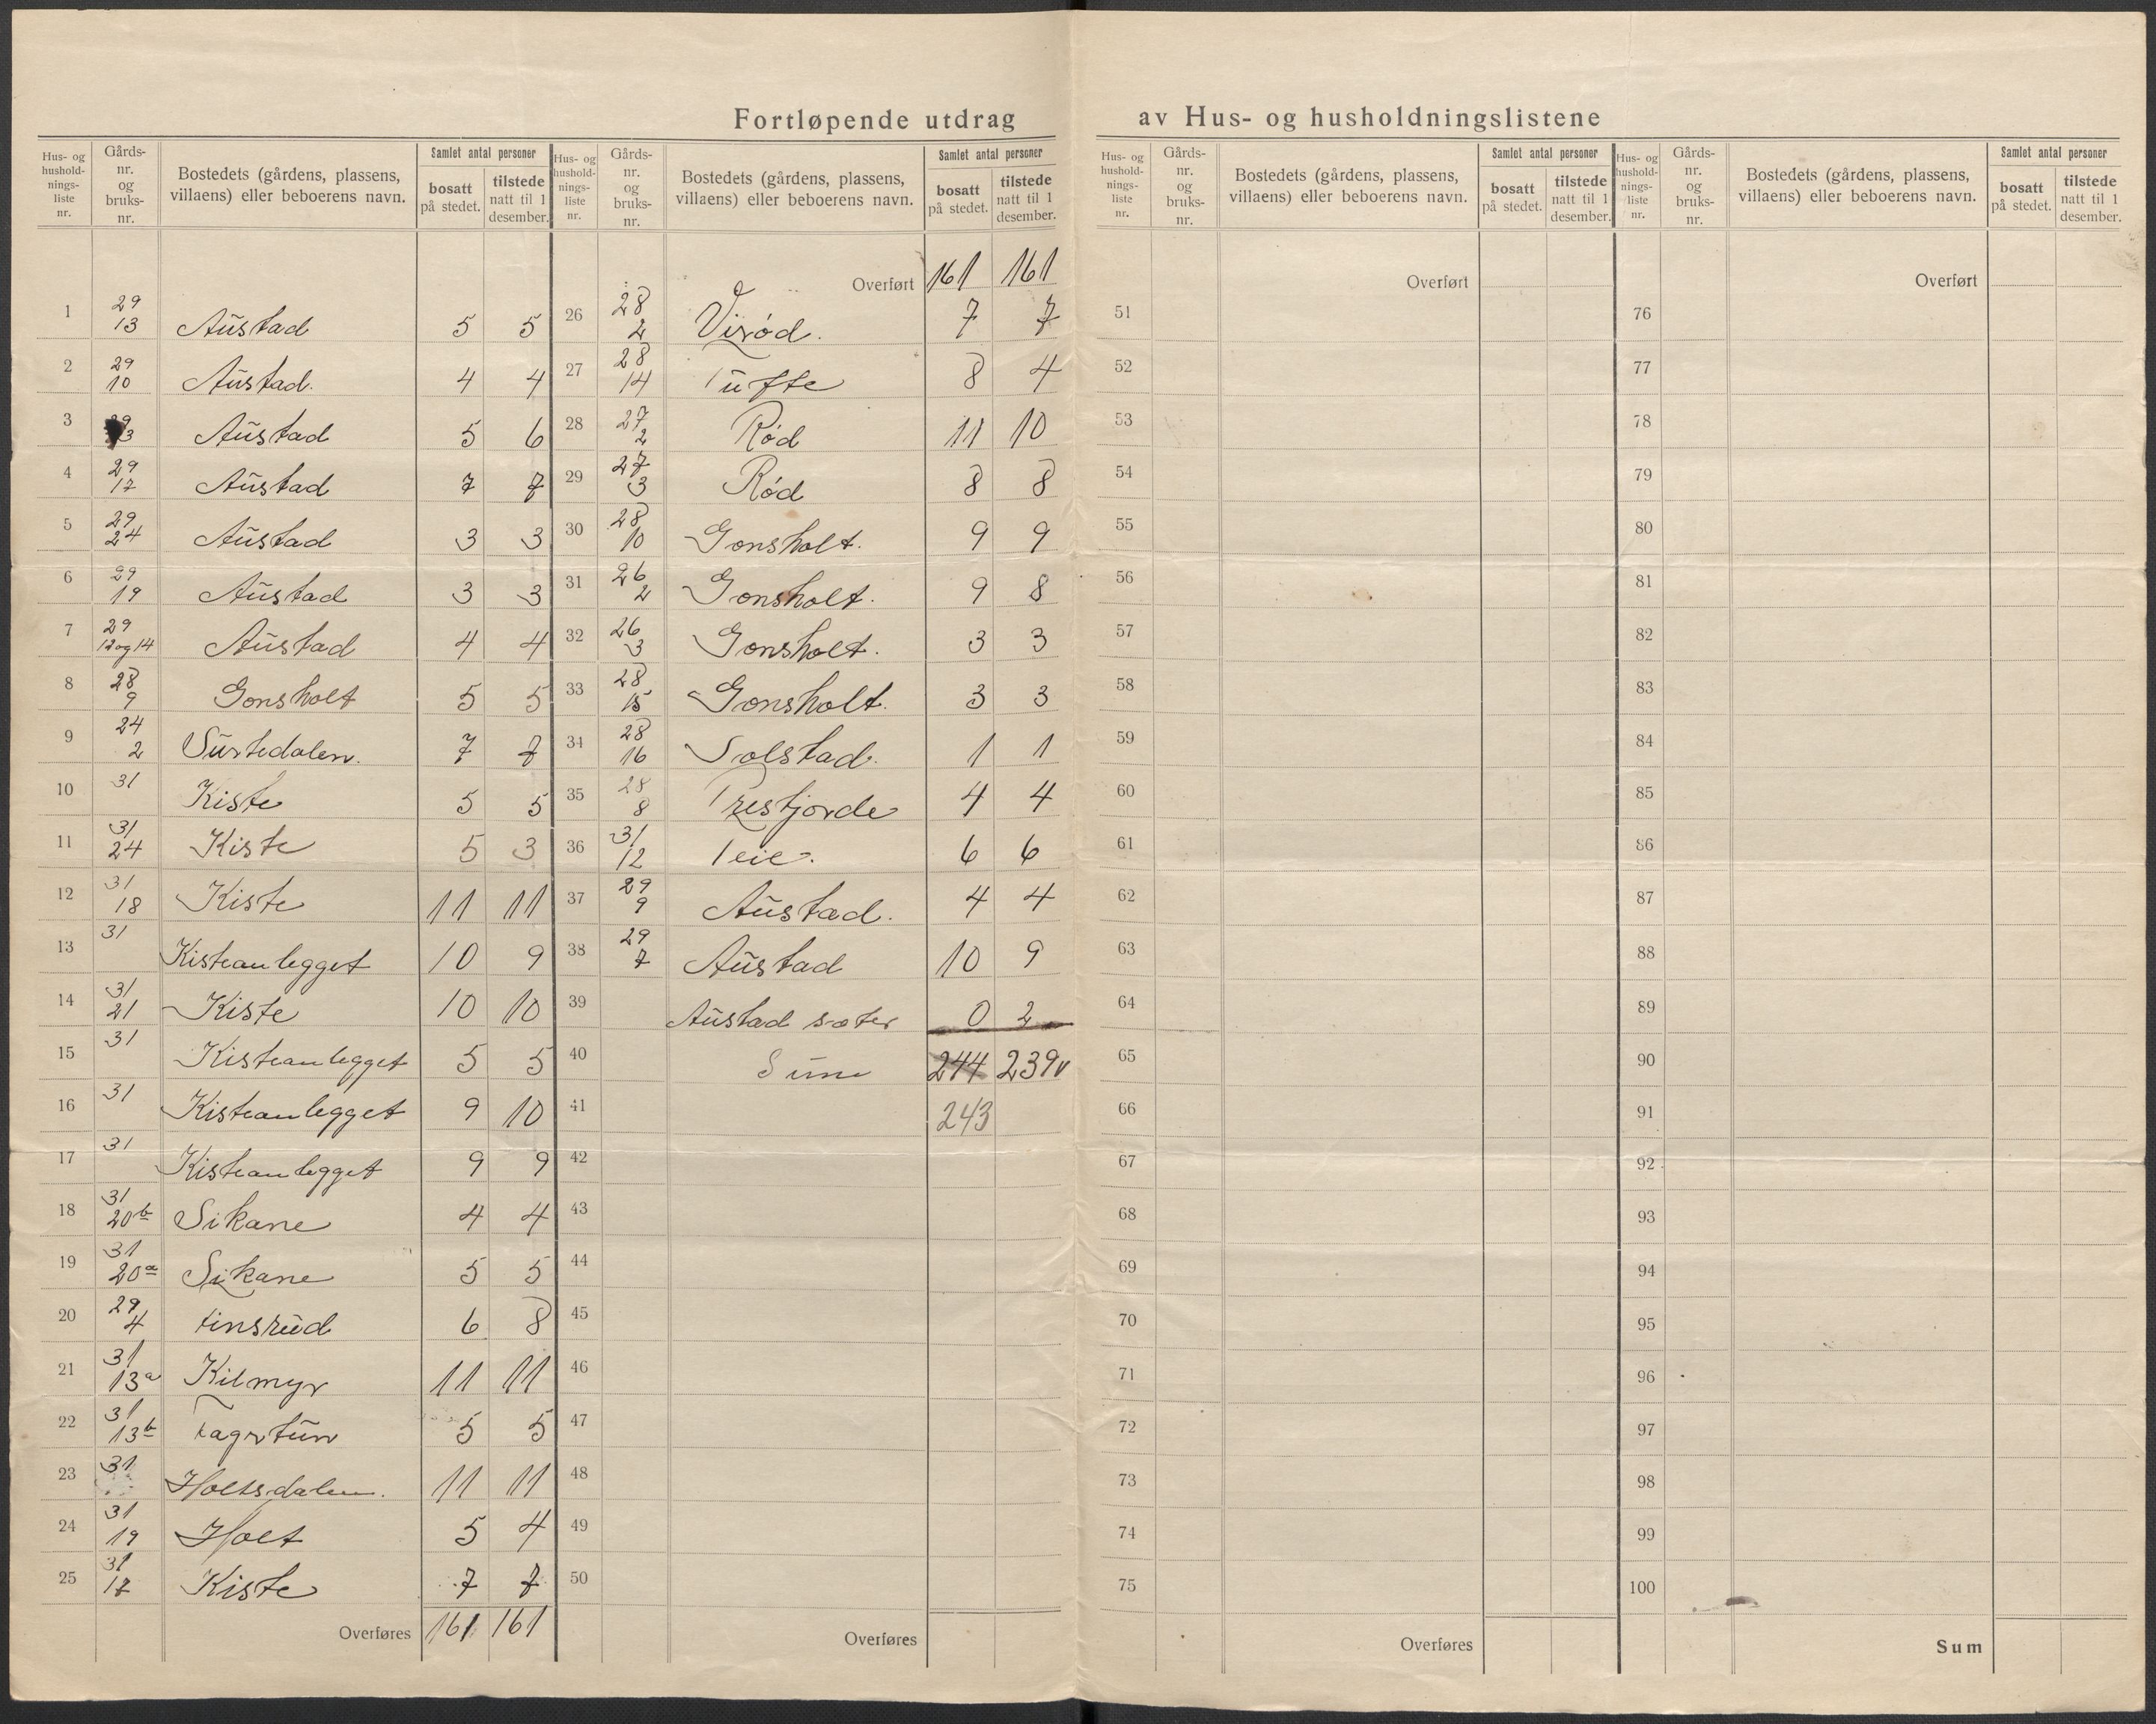 Fortløpende utdrag av Hus- og husholdningslistene
Hus- og husholdnings-liste nr. Gårds-nr. og bruks-nr. Bostedets (gårdens, plassens, villaens) eller beboerens navn. Samlet antal personer bosatt på stedet. tilstede natt til 1 desember.
1 29 13 Austad 5 5
2 29 10 Austad. 4 4
3 29 3 Austad 5 6
4 29 17 Austad 7 7
5 29 24 Austad 3 3
6 29 19 Austad 3 3
7 29 12 og 14 Austad 4 4
8 28 9 Gonsholt 5 5
9 24 2 Surtedalen. 7 7
10 31 Kiste 5 5
11 31 24 Kiste 5 3
12 31 18 Kiste 11 11
13 31 Kisteanlegget 10 9
14 31 21 Kiste 10 10
15 31 Kisteanlegget 5 5
16 31 Kisteanlegget 9 10
17 31 Kisteanlegget 9 9
18 31 20b Sikane 4 4
19 31 20a Sikane 5 5
20 29 4 Finsrud 6 8
21 31 13a Kilmyr 11 11
22 31 13b Fagrtun 5 5
23 31 Holtsdalen. 11 11
24 31 19 Holt 5 4
25 31 17 Kiste 7 7
Overføres 161 161
Hus- og husholdnings-liste nr. Gårds-nr. og bruks-nr. Bostedets (gårdens, plassens, villaens) eller beboerens navn. Samlet antal personer bosatt på stedet. tilstede natt til 1 desember.
Overført 161 161
26 28 2 Virød. 7 7
27 28 14 Tufte 8 4
28 27 2 Rød 11 10
29 27 3 Rød 8 8
30 28 10 Gonsholt. 9 9
31 26 2 Gonsholt. 9 8
32 26 3 Gonsholt. 3 3
33 28 15 Gonsholt. 3 3
34 28 16 Solstad. 1 1
35 28 8 Prestjorde 4 4
36 31 12 Teie. 6 6
37 29 9 Austad. 4 4
38 29 7 Austad 10 9
39 Austad sæter 0 2
40 Sum 244 239
41 243
42
43
44
45
46
47
48
49
50
Overføres
Hus- og husholdnings-liste nr. Gårds-nr. og bruks-nr. Bostedets (gårdens, plassens, villaens) eller beboerens navn. Samlet antal personer bosatt på stedet. tilstede natt til 1 desember.
Overført
51
52
53
54
55
56
57
58
59
60
61
62
63
64
65
66
67
68
69
70
71
72
73
74
75
Overføres
Hus- og husholdnings-liste nr. Gårds-nr. og bruks-nr. Bostedets (gårdens, plassens, villaens) eller beboerens navn. Samlet antal personer bosatt på stedet. tilstede natt til 1 desember.
Overført
76
77
78
79
80
81
82
83
84
85
86
87
88
89
90
91
92
93
94
95
96
97
98
99
100
Sum